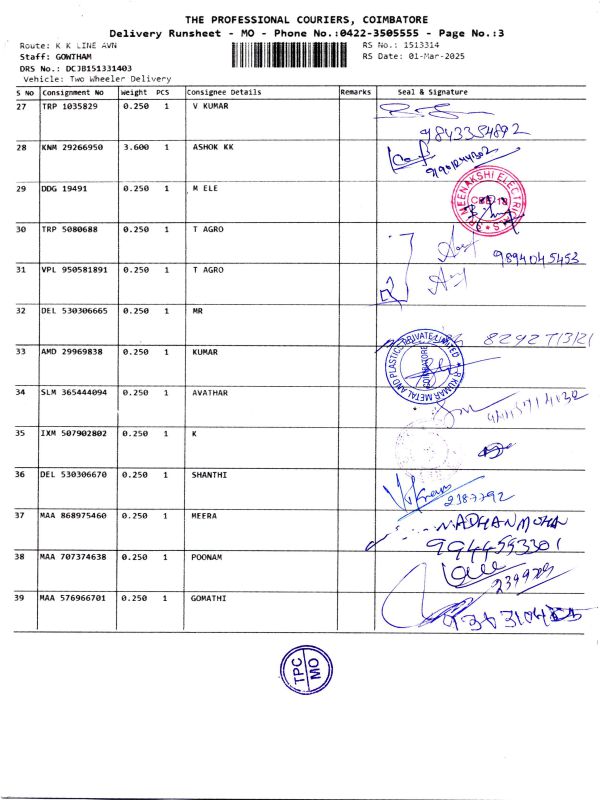 THE PROFESSIONAL COURIERS, COIMBATORE
Delivery Runsheet - MO - Phone No.:0422-3505555 - Page No.:3
Route: K K LINE AVN RS No.: 1513314
Staff: GOWTHAM RS Date: 01-Mar-2025
DRS No.: DCJB151331403
Vehicle: Two Wheeler Delivery
S No Consignment No Weight PCS Consignee Details Remarks Seal & Signature
27 TRP 1035829 0.250 1 V KUMAR
9843354892
28 KNM 29266950 3.600 1 ASHOK KK
29 DDG 19491 0.250 1 M ELE
30 TRP 5080688 0.250 1 T AGRO
9894045453
31 VPL 950581891 0.250 1 T AGRO
32 DEL 530306665 0.250 1 MR
33 AMD 29969838 0.250 1 KUMAR
R KUMAR METAL AND PLASTICS PRIVATE LIMITED
COIMBATORE
34 SLM 365444094 0.250 1 AVATHAR
35 IXM 507902802 0.250 1 K
36 DEL 530306670 0.250 1 SHANTHI
2387792
37 MAA 868975460 0.250 1 MEERA
MADHAN MOHAN
9944593301
38 MAA 707374638 0.250 1 POONAM
39 MAA 576966701 0.250 1 GOMATHI
TPC
MO